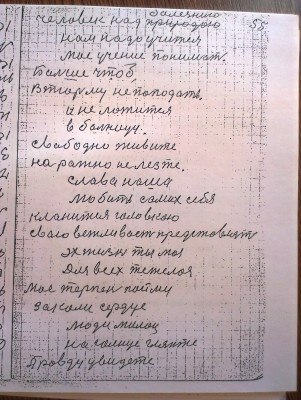 болезнию 55.
человек над природою
нам надо учится
мое учение понимат.
Болше чтоб,
в тюрму не поподать
и не ложится
в болницу.
Свободно живите
на рожно не лезте.
слава наша
любить самих себя
кланится головою
свою вежливость предстовлят
эх жизнь ты моя
для всех тежелоя
мое терпен пойму
закали сердце
люди милои
на солнце глянте
Правду увидете